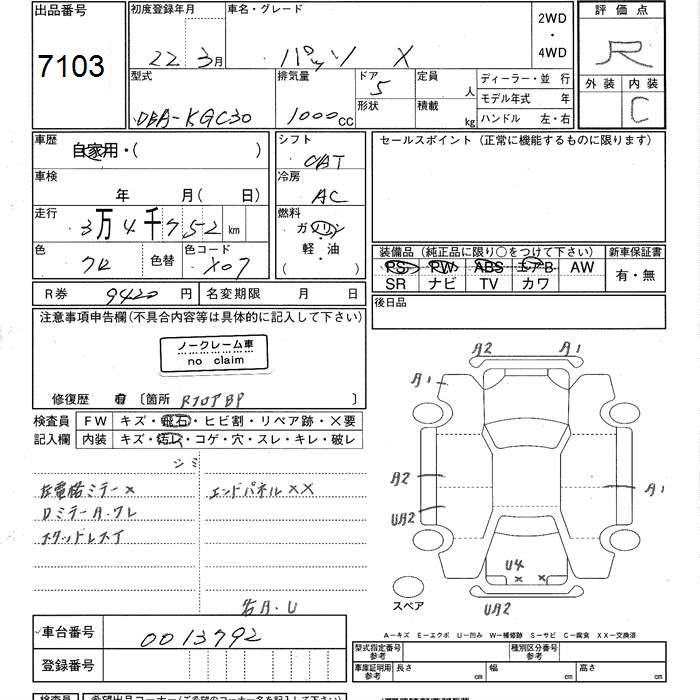 出品番号 初度登録年月 車名・グレード 2WD ・ 4WD 評価点
7103 22 3月 パッソ X R
外装 内装
C
型式 排気量 ドア 定員 人 ディーラー・並 行
DBA-KGC30 1000cc 5 形状 積載 kg モデル年式 年
ハンドル 左・右
車歴 自家用・( ) シフト セールスポイント (正常に機能するものに限ります)
車検 年 月(日) 冷房 AC
走行 3万4千752km 燃料 ガソリン
軽・油
( )
色 クロ 色替 色コード X07
装備品 (純正品に限り○をつけて下さい) 新車保証書
PS PW ABS エアB AW 有・無
SR ナビ TV カワ
R券 9420円 名変期限 月 日
後日品
注意事項申告欄(不具合内容等は具体的に記入して下さい)
ノークレーム車
no claim
修復歴 有 〔箇所 〕
検査員 FW キズ・飛石・ヒビ割・リペア跡・X要
記入欄 内装 キズ・汚レ・コゲ・穴・スレ・キレ・破レ
シミ
エンドパネルXX
A2 A1
A1
A2 A1
UA2
U4
スペア UA2
A-キズ E-エクボ U-凹み W-補修跡 S-サビ C-腐食 XX-交換済
車台番号 0013792
登録番号
型式指定番号 参考 種別区分番号 参考
車庫証明用 参考 長さ cm 幅 cm 高さ cm